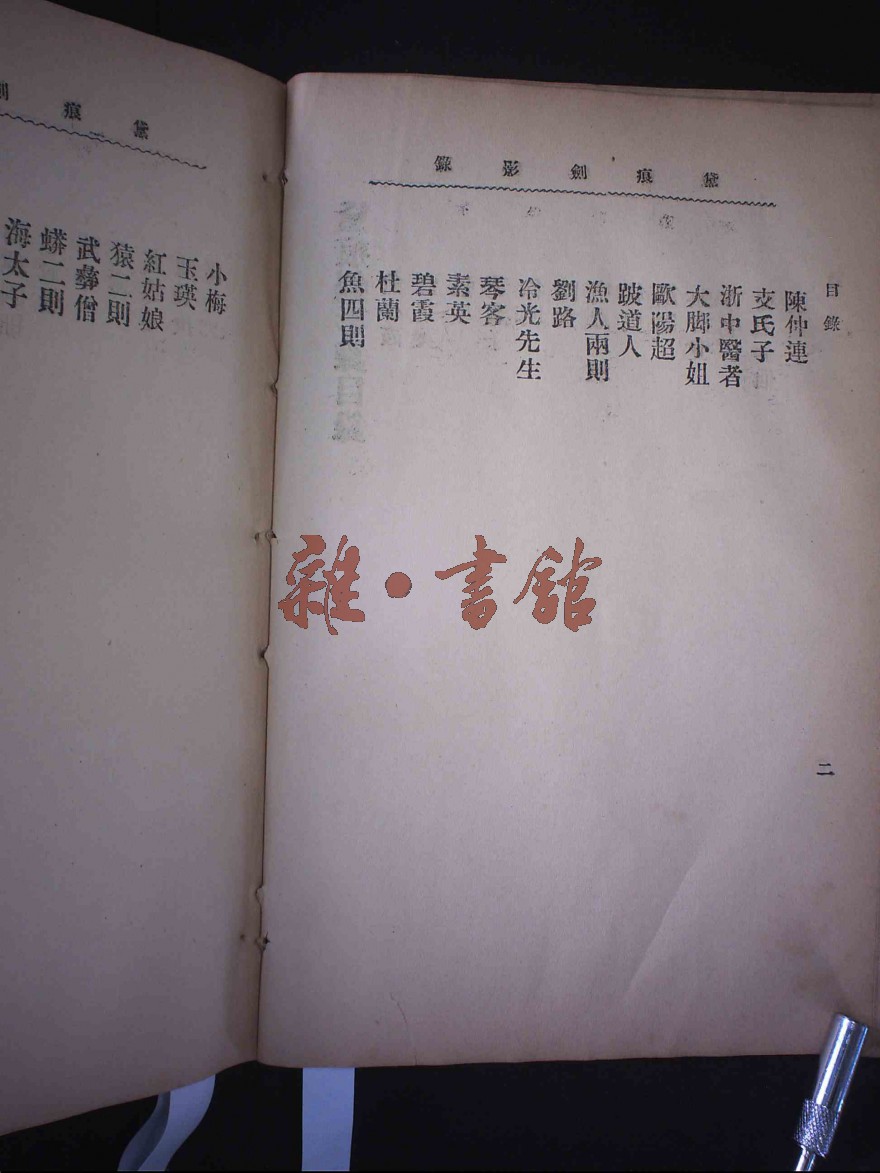 黛痕劍影錄
目錄
陳仲連
支氏子
浙中醫者
大脚小姐
歐陽超
跛道人
漁人兩則
劉路
冷光先生
琴客
素英
碧霞
杜蘭
魚四則
二
黛痕
小梅
玉瑛
紅姑娘
猿二則
武彝僧
蟒二則
海太子
雜·書館